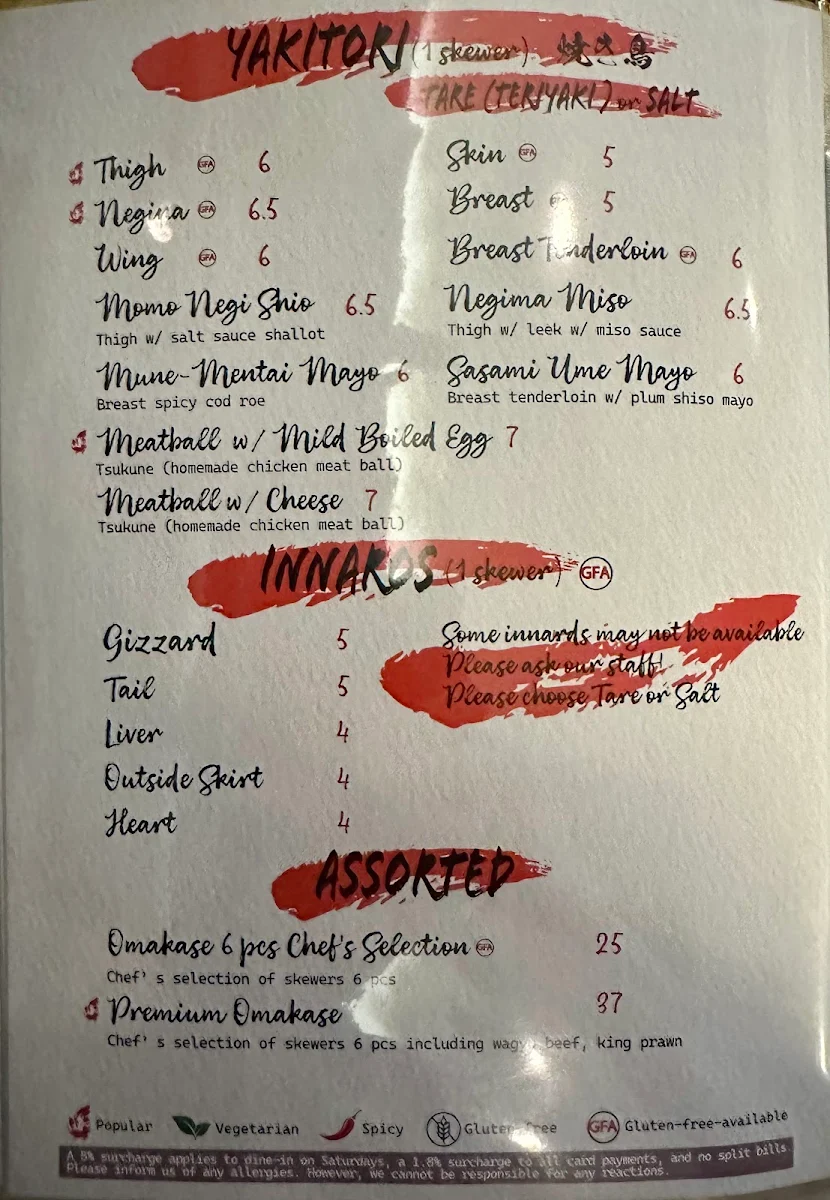 YAKITORI (1 skewer) 焼き鳥
TARE (TERIYAKI) or SALT
Thigh GFA 6
Negima GFA 6.5
Wing GFA 6
Momo Negi Shio 6.5
Thigh w/ salt sauce shallot
Mune-Mentai Mayo 6
Breast spicy cod roe
Meatball w/ Mild Boiled Egg 7
Tsukune (homemade chicken meat ball)
Meatball w/ Cheese 7
Tsukune (homemade chicken meat ball)
Skin GFA 5
Breast 5
Breast Tenderloin GFA 6
Negima Miso 6.5
Thigh w/ leek w/ miso sauce
Sasami Ume Mayo 6
Breast tenderloin w/ plum shiso mayo
INNARDS (1 skewer) GFA
Gizzard 5
Tail 5
Liver 4
Outside Skirt 4
Heart 4
Some innards may not be available
Please ask our staff!
Please choose Tare or Salt
ASSORTED
Omakase 6 pcs Chef's Selection GFA 25
Chef' s selection of skewers 6 pcs
Premium Omakase 37
Chef' s selection of skewers 6 pcs including wagyu beef, king prawn
Popular Vegetarian Spicy Gluten-free GFA Gluten-free-available
A 8% surcharge applies to dine-in on Saturdays, a 1.8% surcharge to all card payments, and no split bills.
Please inform us of any allergies. However, we cannot be responsible for any reactions.